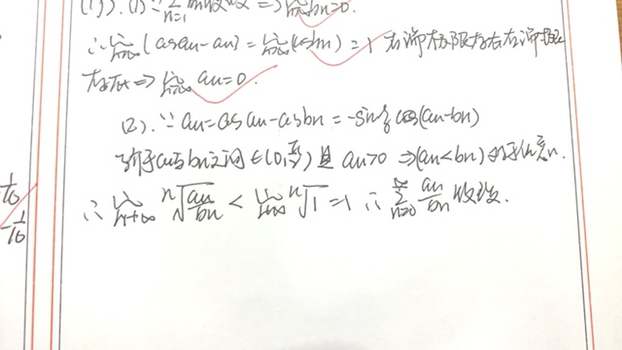 (1). ∵ ∑_{n=1} bn收敛 ⇒ lim_{n→∞} bn=0.
∴ lim_{n→∞}(cosan-an)=lim_{n→∞}(cosbn)=1 右端极限存在左端极限
存在 ⇒ lim_{n→∞} an=0.
(2). ∵ an=cosan-cosbn=-sinξ (an-bn)
ξ介于an与bn之间∈(0,π/2)且 an>0 ⇒(an<bn) 对于任意n.
∴ lim_{n→∞} ⁿ√(an/bn) < lim_{n→∞} ⁿ√1=1 ∴ ∑_{n=0}^{∞} an/bn 收敛.
1/10
-1/10